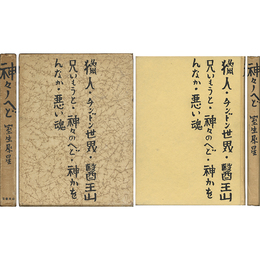 神々のへど
猫人・チンドン世界・醫王山
兄いもうと・神々のへど・神かを
んなか・悪い魂
猫人・チンドン世界・醫王山
兄いもうと・神々のへど・神かを
んなか・悪い魂
神々のへど 室生犀星